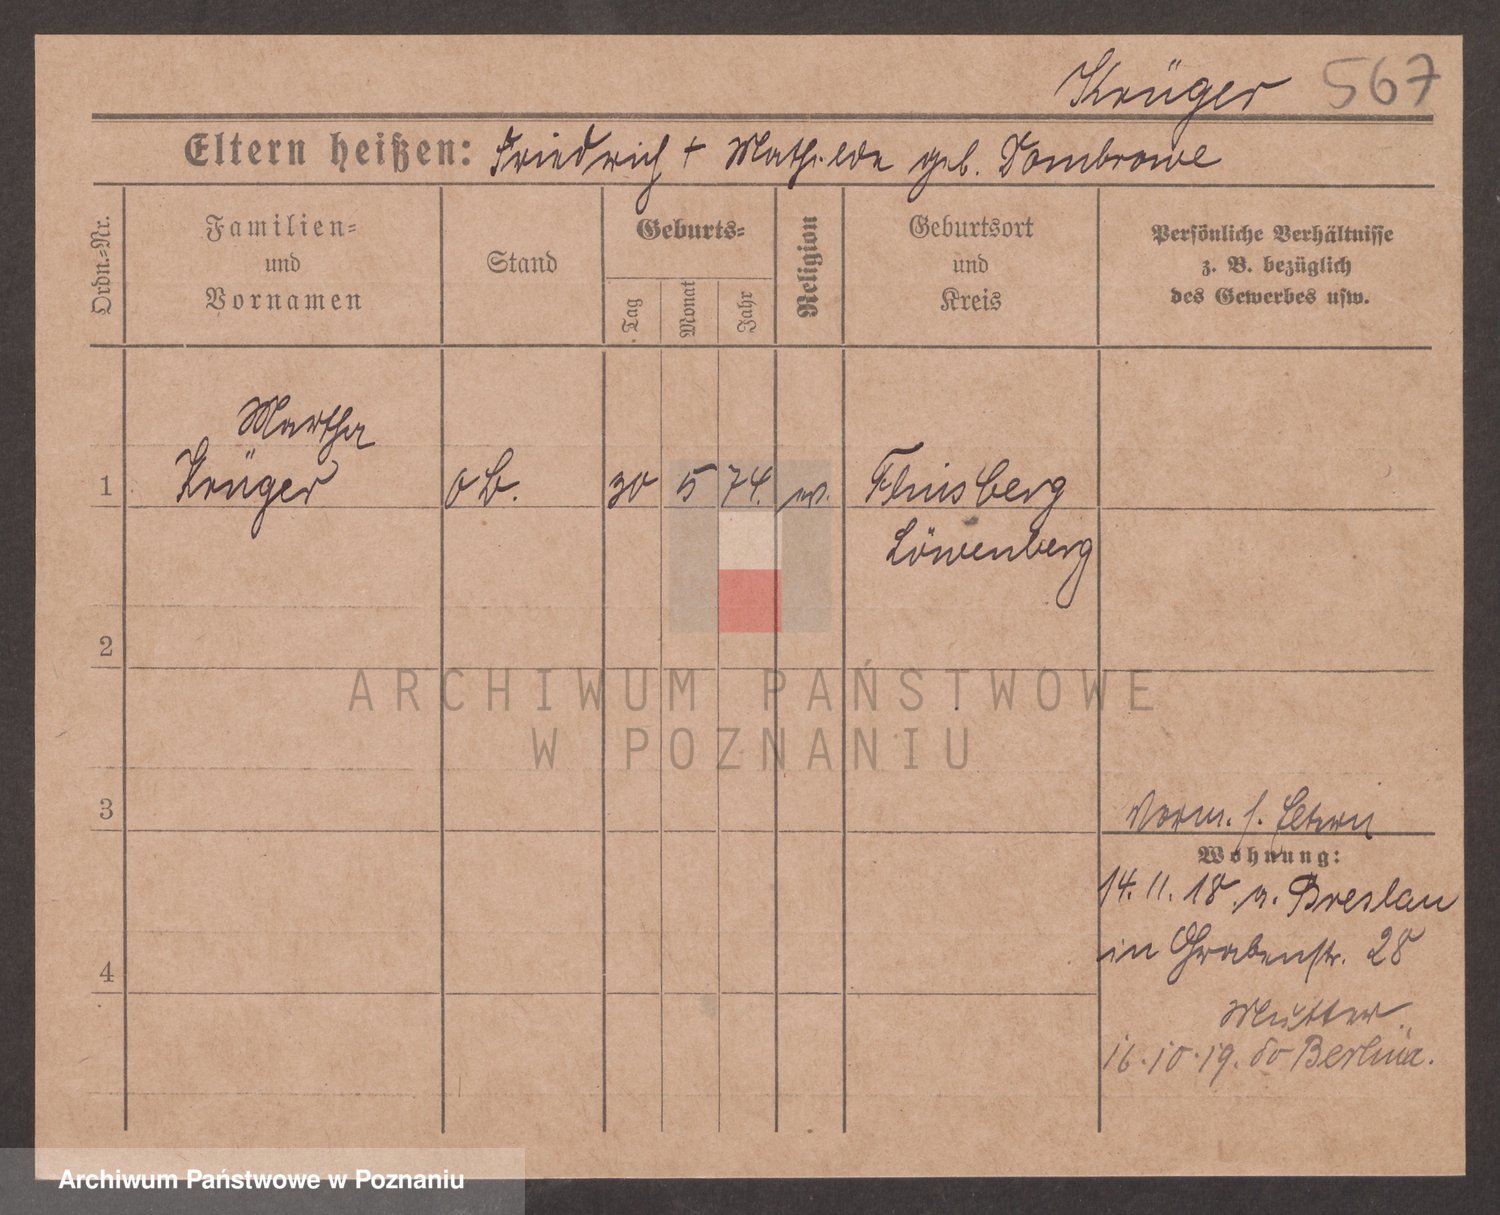 Krüger 567
Eltern heißen: Friedrich + Mathilde geb. Dombrowe
Ordn.-Nr.
Familien-
und
Vornamen
Stand
Geburts-
Tag
Monat
Jahr
Religion
Geburtsort
und
Kreis
Persönliche Verhältnisse
z. B. bezüglich
des Gewerbes usw.
Martha
1 Krüger 30 5 74. ev. Flinsberg
Löwenberg
2
ARCHIWUM PAŃSTWOWE
W POZNANIU
3
Vorm. s. Eltern
Wohnung:
14. 11. 18. v. Breslau
in Grabenstr. 28
4
Mutter
16.10.19. Berlin
Archiwum Państwowe w Poznaniu